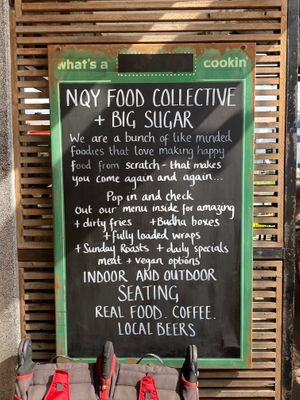 what's a cookin'
NQY FOOD COLLECTIVE
+ BIG SUGAR
We are a bunch of like minded
foodies that love making happy
food from scratch - that makes
you come again and again...
Pop in and check
Out our menu inside for amazing
+ dirty fries + Budha boxes
+ fully loaded wraps
+ Sunday Roasts + daily specials
meat + vegan options
INDOOR AND OUTDOOR
SEATING
REAL FOOD. COFFEE.
LOCAL BEERS